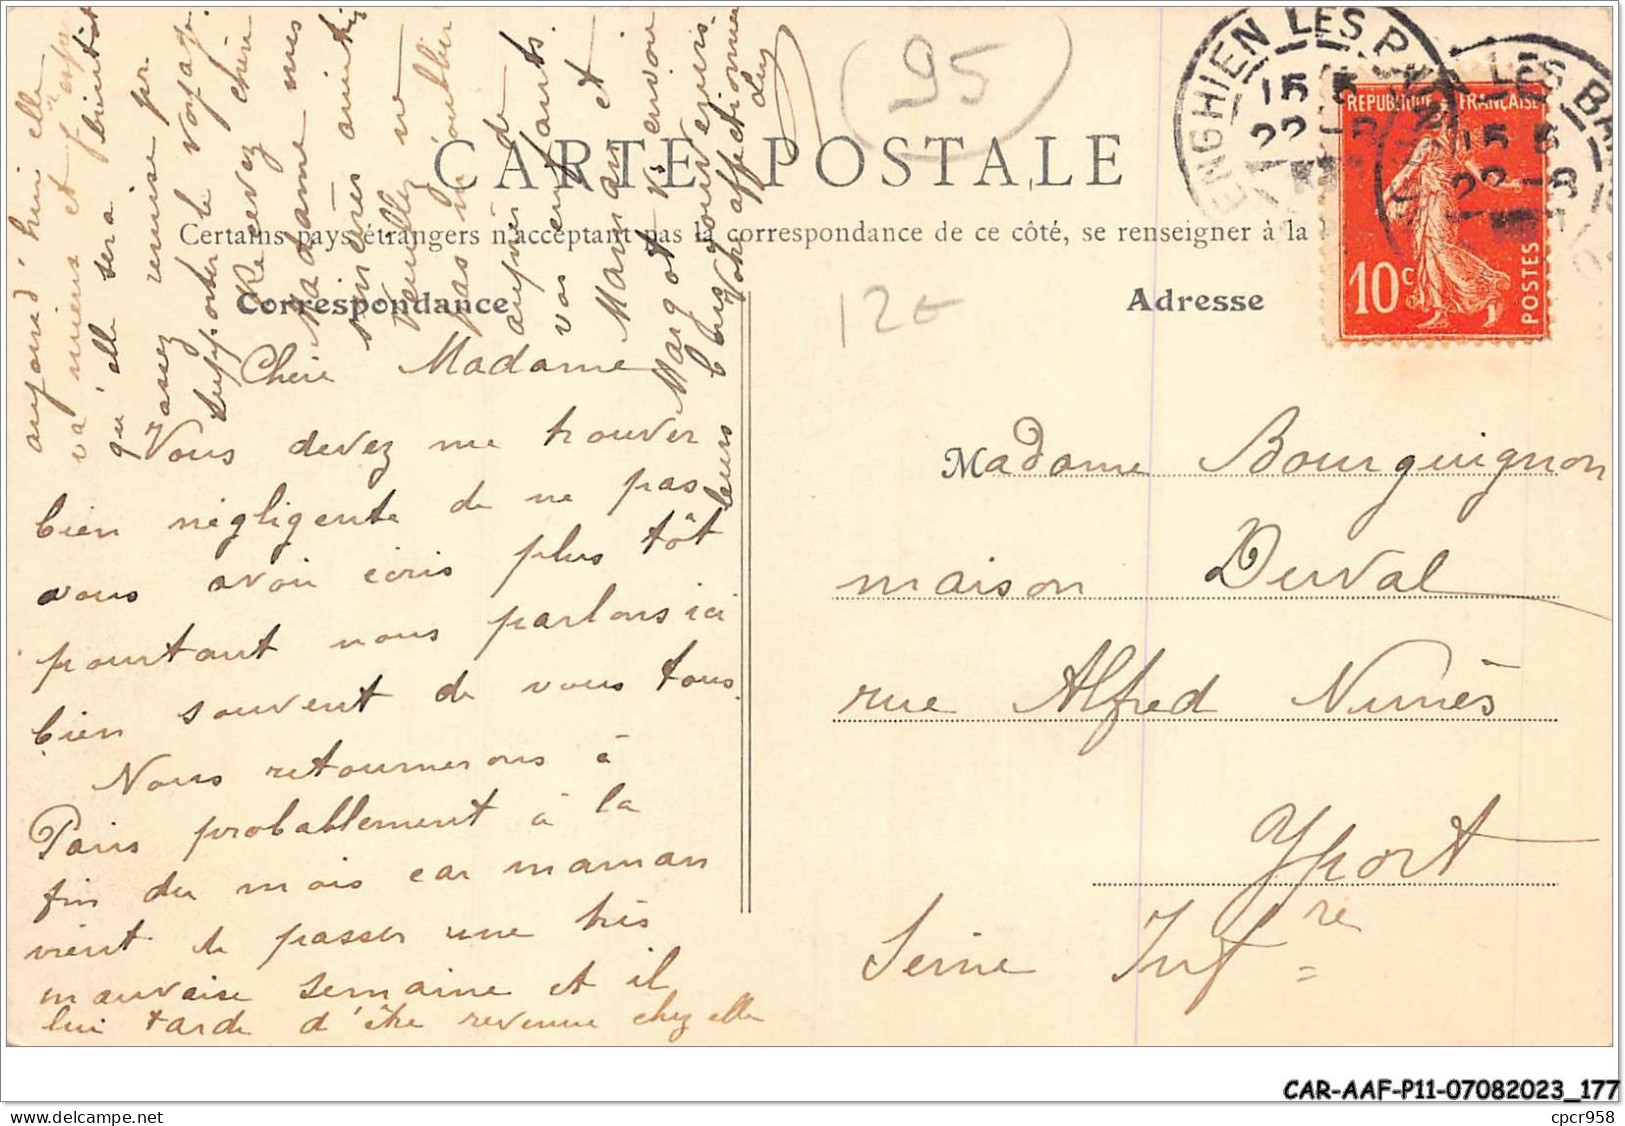 CARTE POSTALE
Certains pays étrangers n'acceptant pas la correspondance de ce côté, se renseigner à la
Correspondance
Adresse
(95)
12€
ENGHIEN LES BAINS
15 5
22 -8
LES BAINS
15 5
22 -8
REPUBLIQUE FRANÇAISE
10c
POSTES
Chère Madame
Vous devez me trouver
bien négligente de ne pas
vous avoir écris plus tôt
pourtant nous parlons ici
bien souvent de vous tous.
Nous retournerons à
Paris probablement à la
fin du mois car maman
vient de passer une très
mauvaise semaine et il
lui tarde d'être revenue chez elle
aujourd'hui elle
va mieux et j'espère
qu'elle sera bientôt
assez remise pr
supporter le voyage.
Recevez chère
Madame mes
sincères amitiés
veuillez ne
pas m'oublier
auprès de
vos enfants.
Maman et
Margot v. envoie
leurs
bons souvenirs.
affectionnée
Lucy
Madame Bourguignon
maison Duval
rue Alfred Nunès
Yport
Seine Infre
CAR-AAF-P11-07082023_177
cpcr958